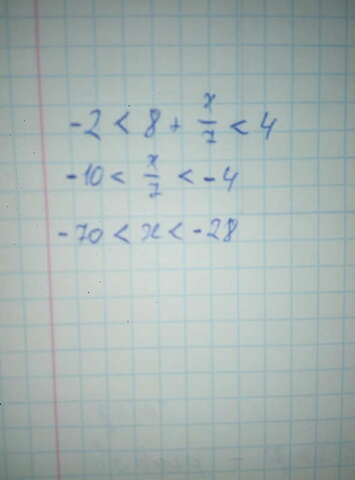 -2 < 8 + x/7 < 4
-10 < x/7 < -4
-70 < x < -28